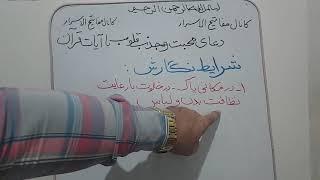 بسم الله الرحمن الرحیم
کانال مفاتیح الاسرار کانال مفاتیح الاسرار
دعای محبت و جذب قلوب با آیات قرآن
شرایط نگارش:
۱- در مکانی پاک - در خلوت با رعایت
نظافت بدن و لباس